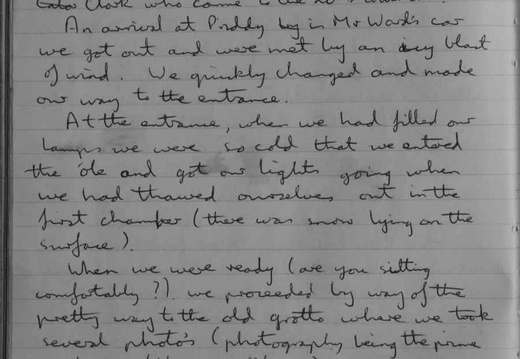 Clark who came to
An arrival at Priddy by in Mr Ward's car
we got out and were met by an icy blast
of wind. We quickly changed and made
our way to the entrance.
At the entrance, when we had filled our
lamps we were so cold that we entered
the 'ole and got our lights going when
we had thawed ourselves out in the
first chamber (there was snow lying on the
surface).
When we were ready (are you sitting
comfortably?) we proceeded by way of the
pretty way to the old grotto where we took
several photo's (photography being the prime